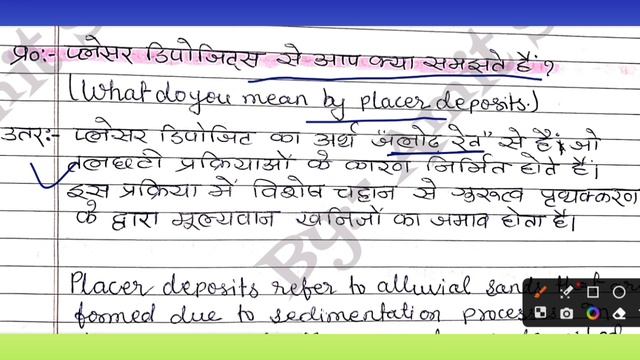 प्र०:- प्लेसर डिपोजिट्स से आप क्या समझते हैं?
(What do you mean by placer deposits.)
उतर:- प्लेसर डिपोजिट का अर्थ "जलोढ रेत" से है, जो
तलछटी प्रक्रियाओं के कारण निर्मित होते हैं।
इस प्रक्रिया में विशेष चट्टान से गुरुत्व पृथक्करण
के द्वारा मूल्यवान खनिजों का जमाव होता है।
Placer deposits refer to alluvial sands that are
formed due to sedimentation processes. In